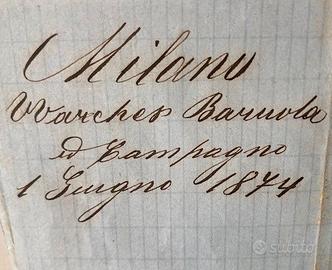 Milano
Warchex Baruola
ed Compagno
1 Giugno 1874
subito